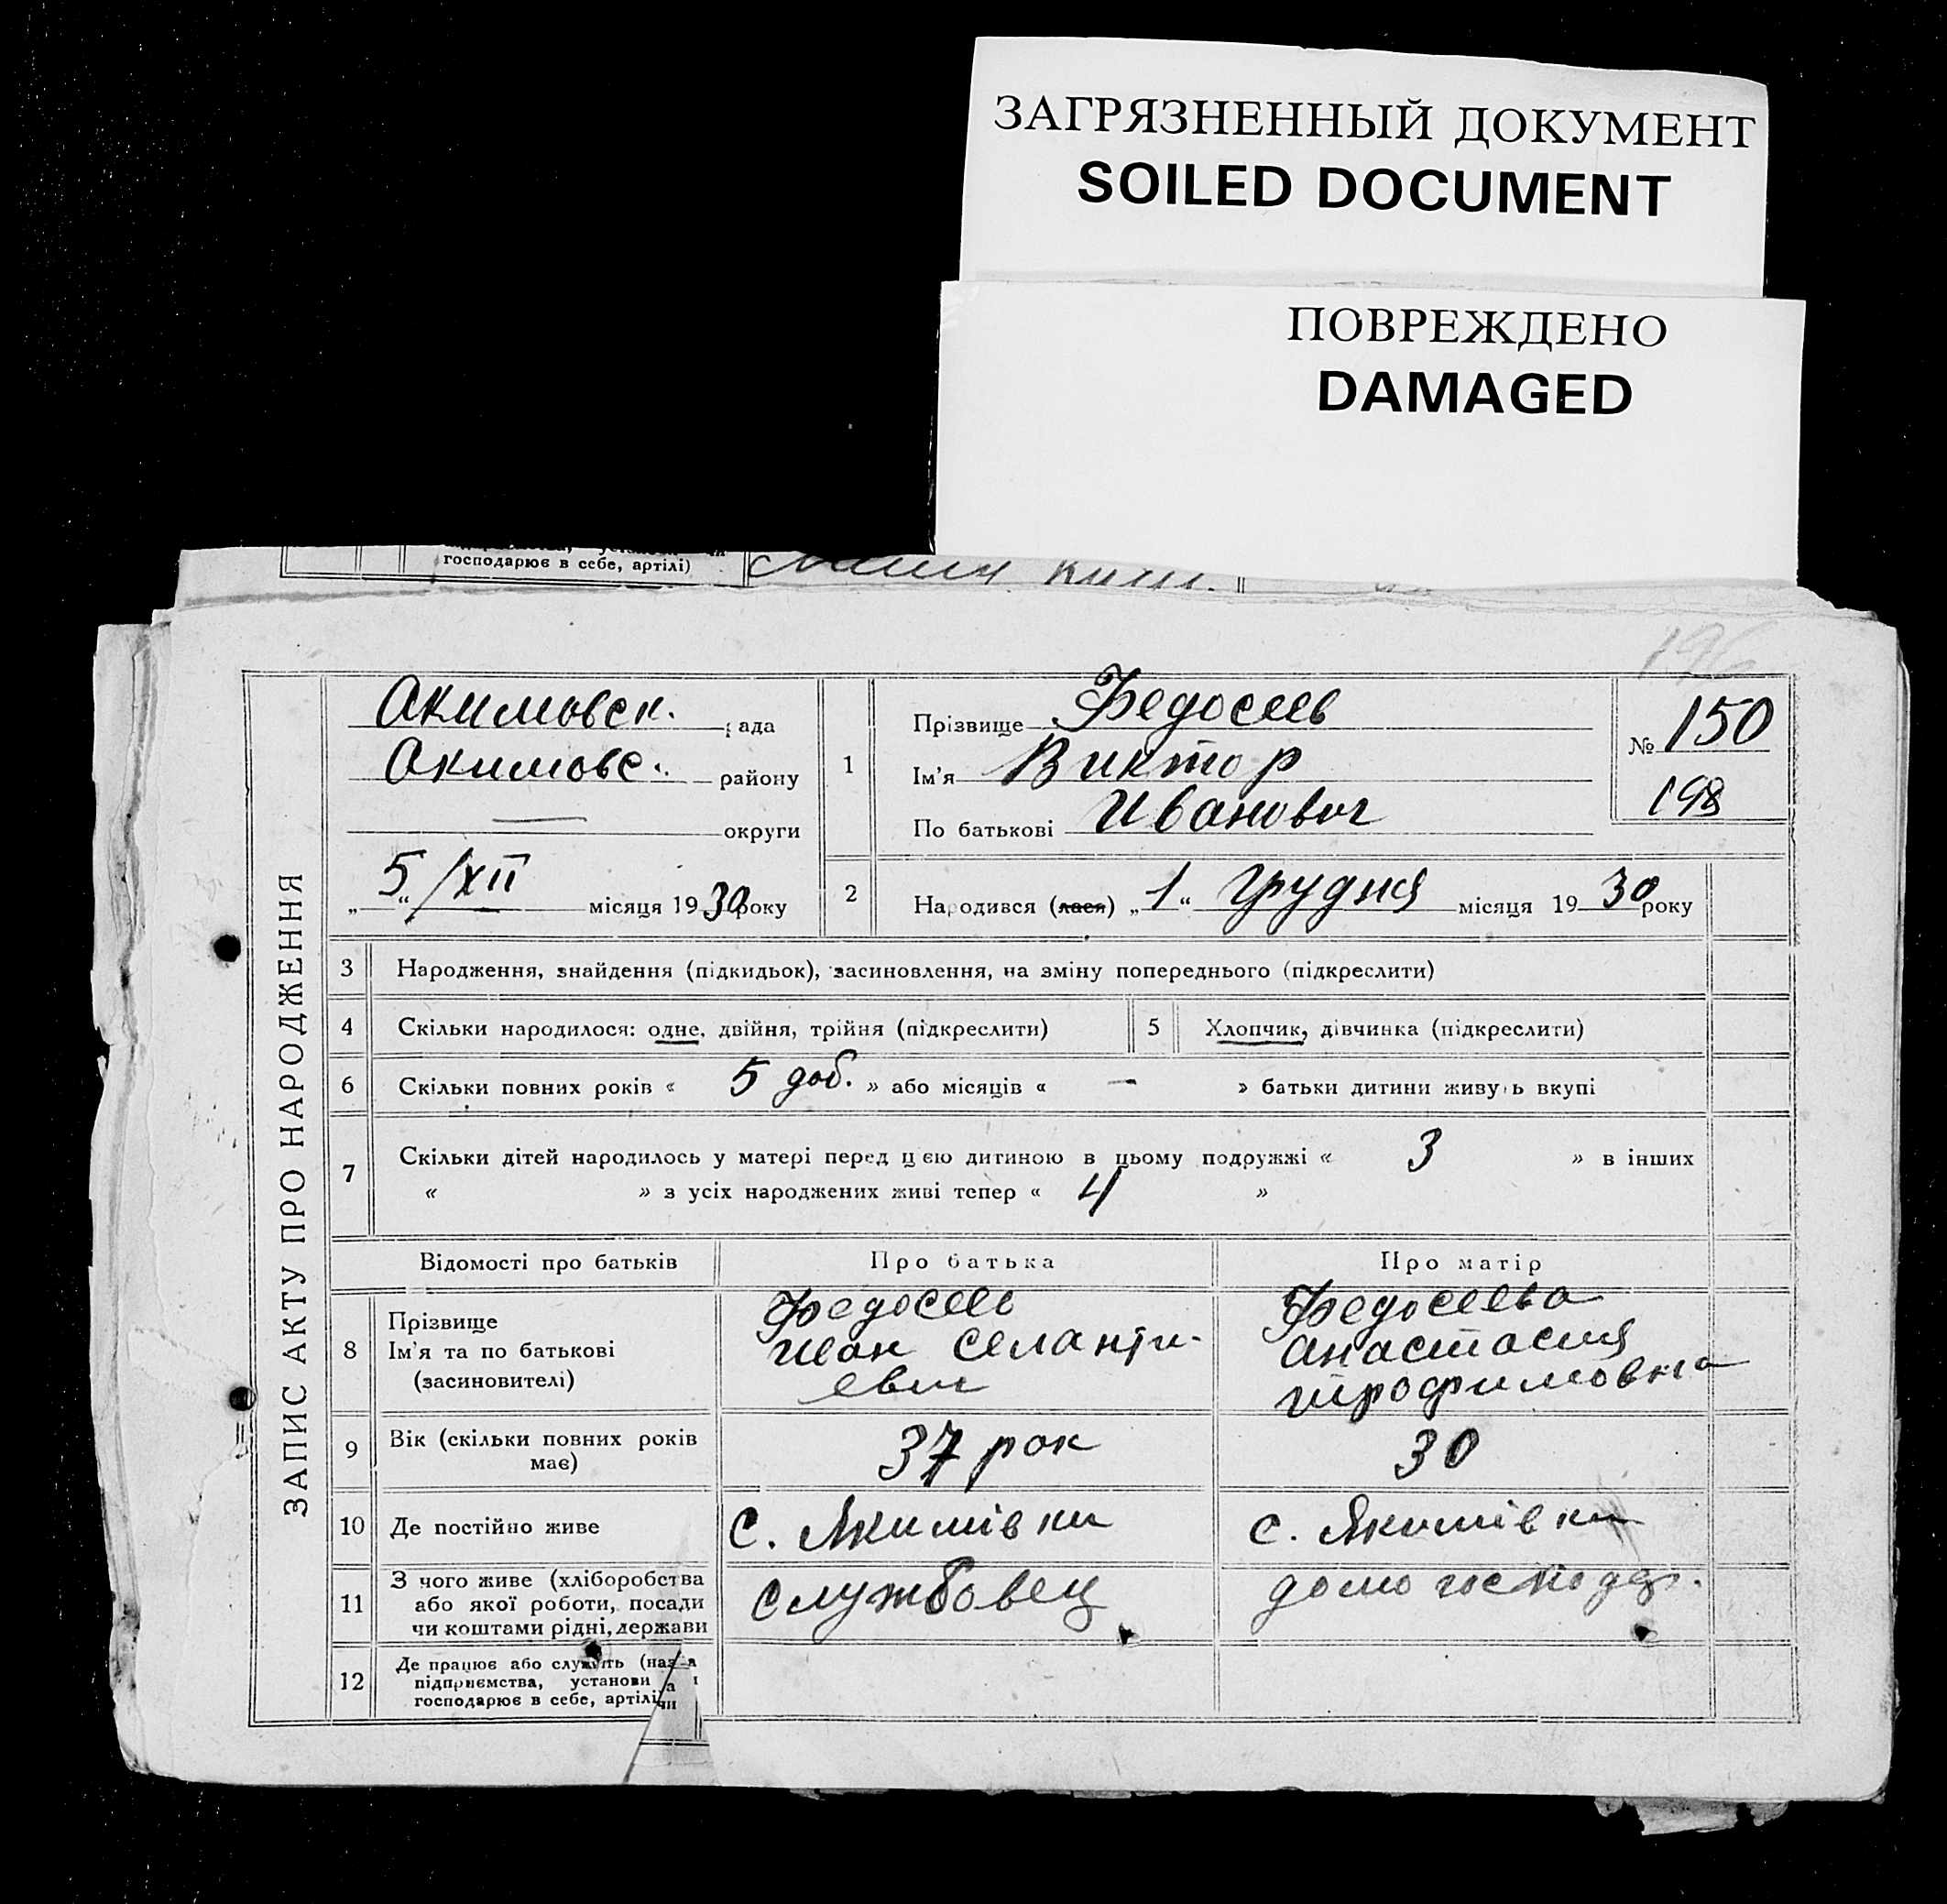 ЗАГРЯЗНЕННЫЙ ДОКУМЕНТ
SOILED DOCUMENT
ПОВРЕЖДЕНО
DAMAGED
господарює в себе, артілі)
196
ЗАПИС АКТУ ПРО НАРОДЖЕННЯ
Акимовск. рада
Акимовс. району
— округи
„5“/XII місяця 1930 року
1
Прізвище Федосеев
Ім'я Виктор
По батькові Иванович
№ 150
198
2 Народився (лася) „1“ грудня місяця 1930 року
3 Народження, знайдення (підкидьок), засиновлення, на зміну попереднього (підкреслити)
4 Скільки народилося: одне, двійня, трійня (підкреслити) 5 Хлопчик, дівчинка (підкреслити)
6 Скільки повних років « 5 доб. » або місяців « — » батьки дитини живуть вкупі
7 Скільки дітей народилось у матері перед цією дитиною в цьому подружжі « 3 » в інших
« » з усіх народжених живі тепер « 4 »
Відомості про батьків Про батька Про матір
8 Прізвище
Ім'я та по батькові
(засиновителі)
Федосеев
Иван Селанти-
евич
Федосеева
Анастасия
Трофимовна
9 Вік (скільки повних років
має)
37 рок
30
10 Де постійно живе с. Якимівки с. Якимівки
11 З чого живе (хліборобства
або якої роботи, посади
чи коштами рідні, держави
службовец
домогосподар.
12 Де працює або служить (назва
підприємства, установи чи
господарює в себе, артілі